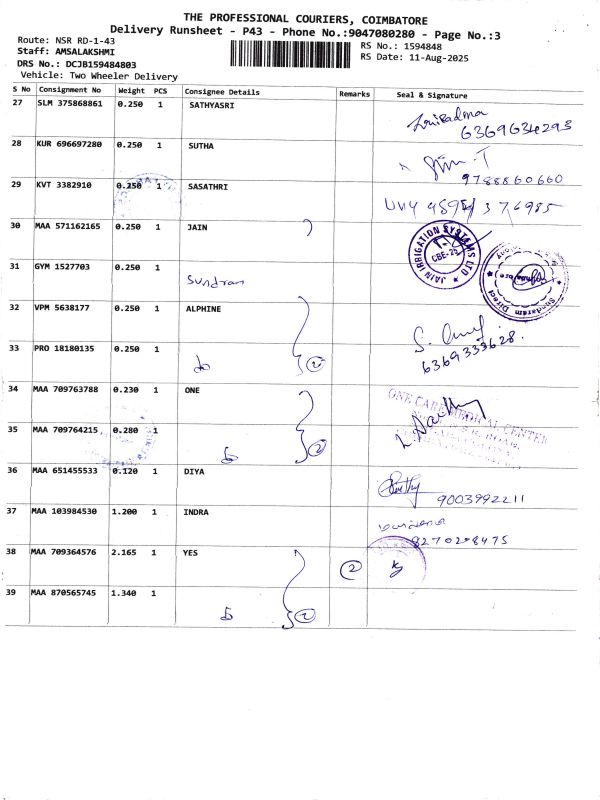 THE PROFESSIONAL COURIERS, COIMBATORE
Delivery Runsheet - P43 - Phone No.:9047080280 - Page No.:3
Route: NSR RD-1-43
Staff: AMSALAKSHMI
DRS No.: DCJB159484803
Vehicle: Two Wheeler Delivery
RS No.: 1594848
RS Date: 11-Aug-2025
S No Consignment No Weight PCS Consignee Details Remarks Seal & Signature
27 SLM 375868861 0.250 1 SATHYASRI
6369634293
28 KUR 696697280 0.250 1 SUTHA
9788860660
29 KVT 3382910 0.250 1 SASATHRI
30 MAA 571162165 0.250 1 JAIN
JAIN IRRIGATION SYSTEMS LTD
CBE-25
31 GYM 1527703 0.250 1
Sundram
Sundaram Direct
32 VPM 5638177 0.250 1 ALPHINE
33 PRO 18180135 0.250 1
2
6369333628
34 MAA 709763788 0.230 1 ONE
ONE CARE MEDICAL CENTER
35 MAA 709764215 0.280 1
2
36 MAA 651455533 0.120 1 DIYA
9003992211
37 MAA 103984530 1.200 1 INDRA
38 MAA 709364576 2.165 1 YES 2
39 MAA 870565745 1.340 1
2